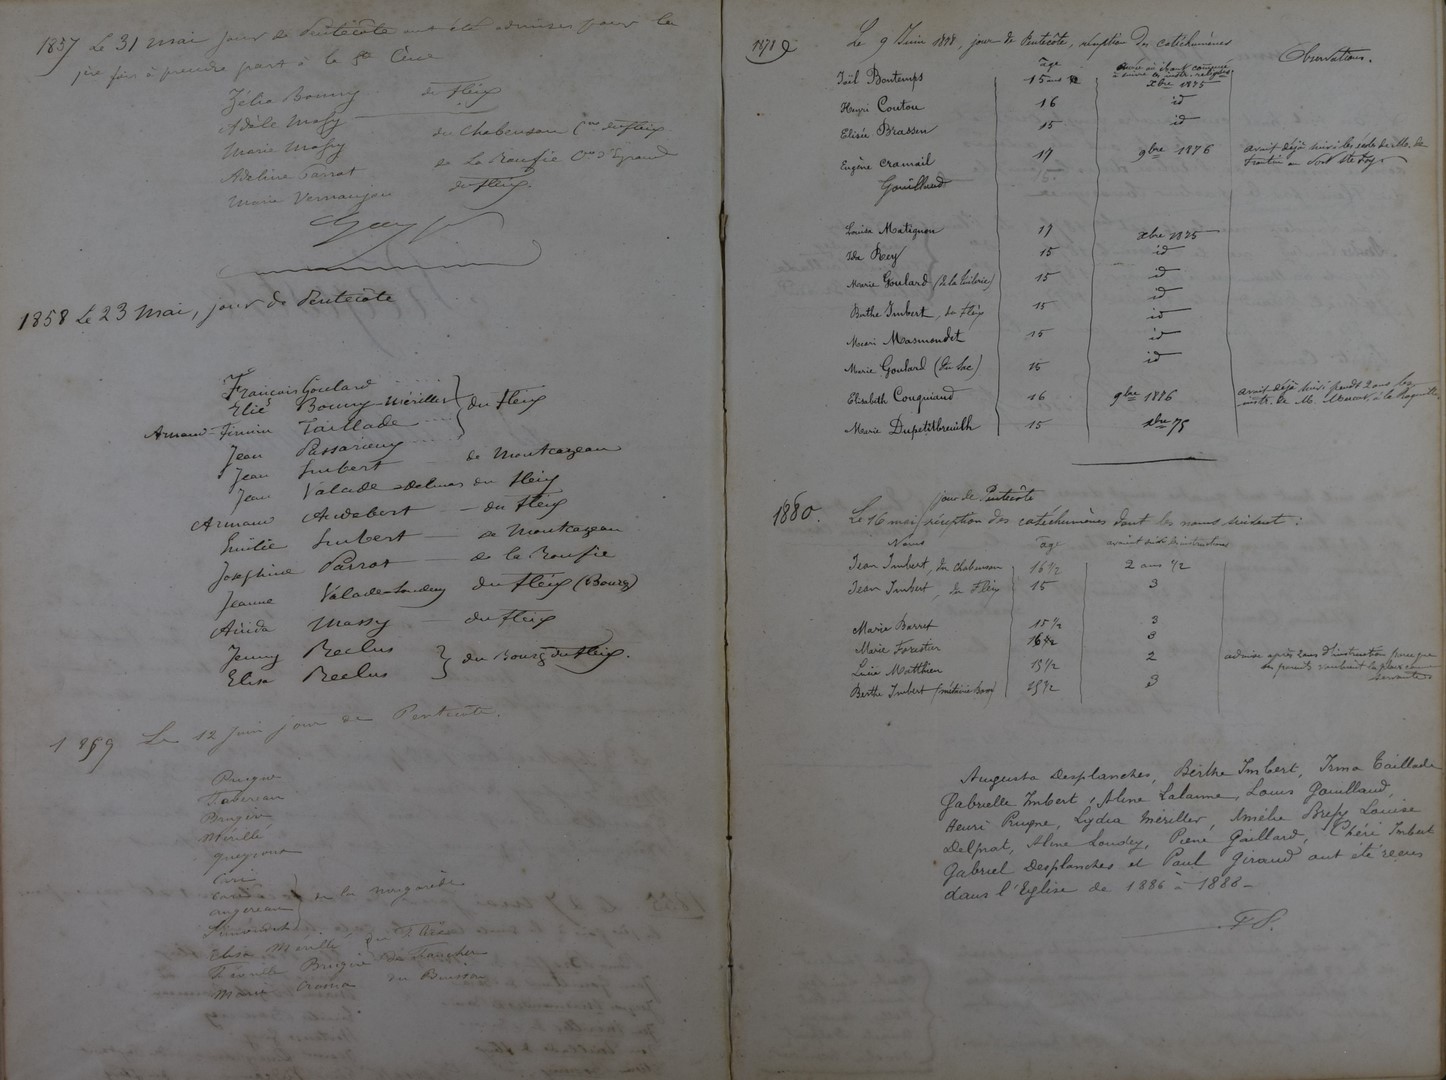 1857 Le 31 mai jour de Pentecôte ont été admises pour la
1ère fois à prendre part à la Ste Cène
Zélia Bounny du fleix
Adèle Massy
Marie Massy du Chabensan
Adeline Parrot de La Roufie
Marie Vernaujou du fleix.
1858 Le 23 Mai, jour de Pentecôte
François Goulard
Elié Bouny-Mériller du fleix
Armand-Firmin Taillade
Jean
Jean Imbert de Montcazeau
Jean Valade du fleix
Armand Audebert — du fleix
Emilie Imbert — de Montcazeau
Joséphine Parrot — de la Roufie
Jeanne Valade-Loudey du fleix (Bourg)
Anida Massy — du fleix
Jenny Reclus
Elisa Reclus du Bourg du fleix.
1859 Le 12 Juin jour de Pentecôte.
Rougne
Tabereau
Brugère
Mérillé
de la Nougarède
Elisa Mérillé
Brugère du Foucher
Marie du Buisson
1878 Le 9 Juin 1878, jour de Pentecôte, réception des catéchumènes
âge Observations.
Joël Bontemps 15 ans Xbre 1875
Henri Coutou 16 id
Elisée Brassen 15 id
Eugène Cramail 17 9bre 1876 avait déjà suivi
Gouilhaud 15
Louise Matignon 17 Xbre 1875
Ida Rey 15 id
Marie Goulard (de la Tuilerie) 15 id
Berthe Imbert, du fleix 15 id
id
Henri Masmondet 15 id
Marie Goulard (du Lac) 15 id
Elisabeth Conquiaud 16 9bre 1876 avait déjà suivi pendt 2 ans les
instr. de M.
Marie Dupetitbreuilh 15 Xbre 75
jour de Pentecôte
1880. Le 16 mai réception des catéchumènes dont les noms suivent :
Noms âge
Jean Imbert, du Chabensan 16 1/2 2 ans 1/2
Jean Imbert, du Fleix 15 3
Marie Barret 15 1/2 3
Marie Forestier 16 1/2 3
Lucie Matthieu 15 1/2 2 admise après 2 ans d'instruction parce que
ses parents voulaient la placer comme
servante
Berthe Imbert 15 1/2 3
Augusta Desplanches, Berthe Imbert, Irma Taillade
Gabrielle Imbert, Aline Lalanne, Louis Gouilland,
Henri Rougne, Lydia Mériller, Amélie Louise
Delprat, Aline Loudey, Pierre Gaillard, Chéri Imbert
Gabriel Desplanches et Paul Giraud ont été reçus
dans l'Eglise de 1886 à 1888 —